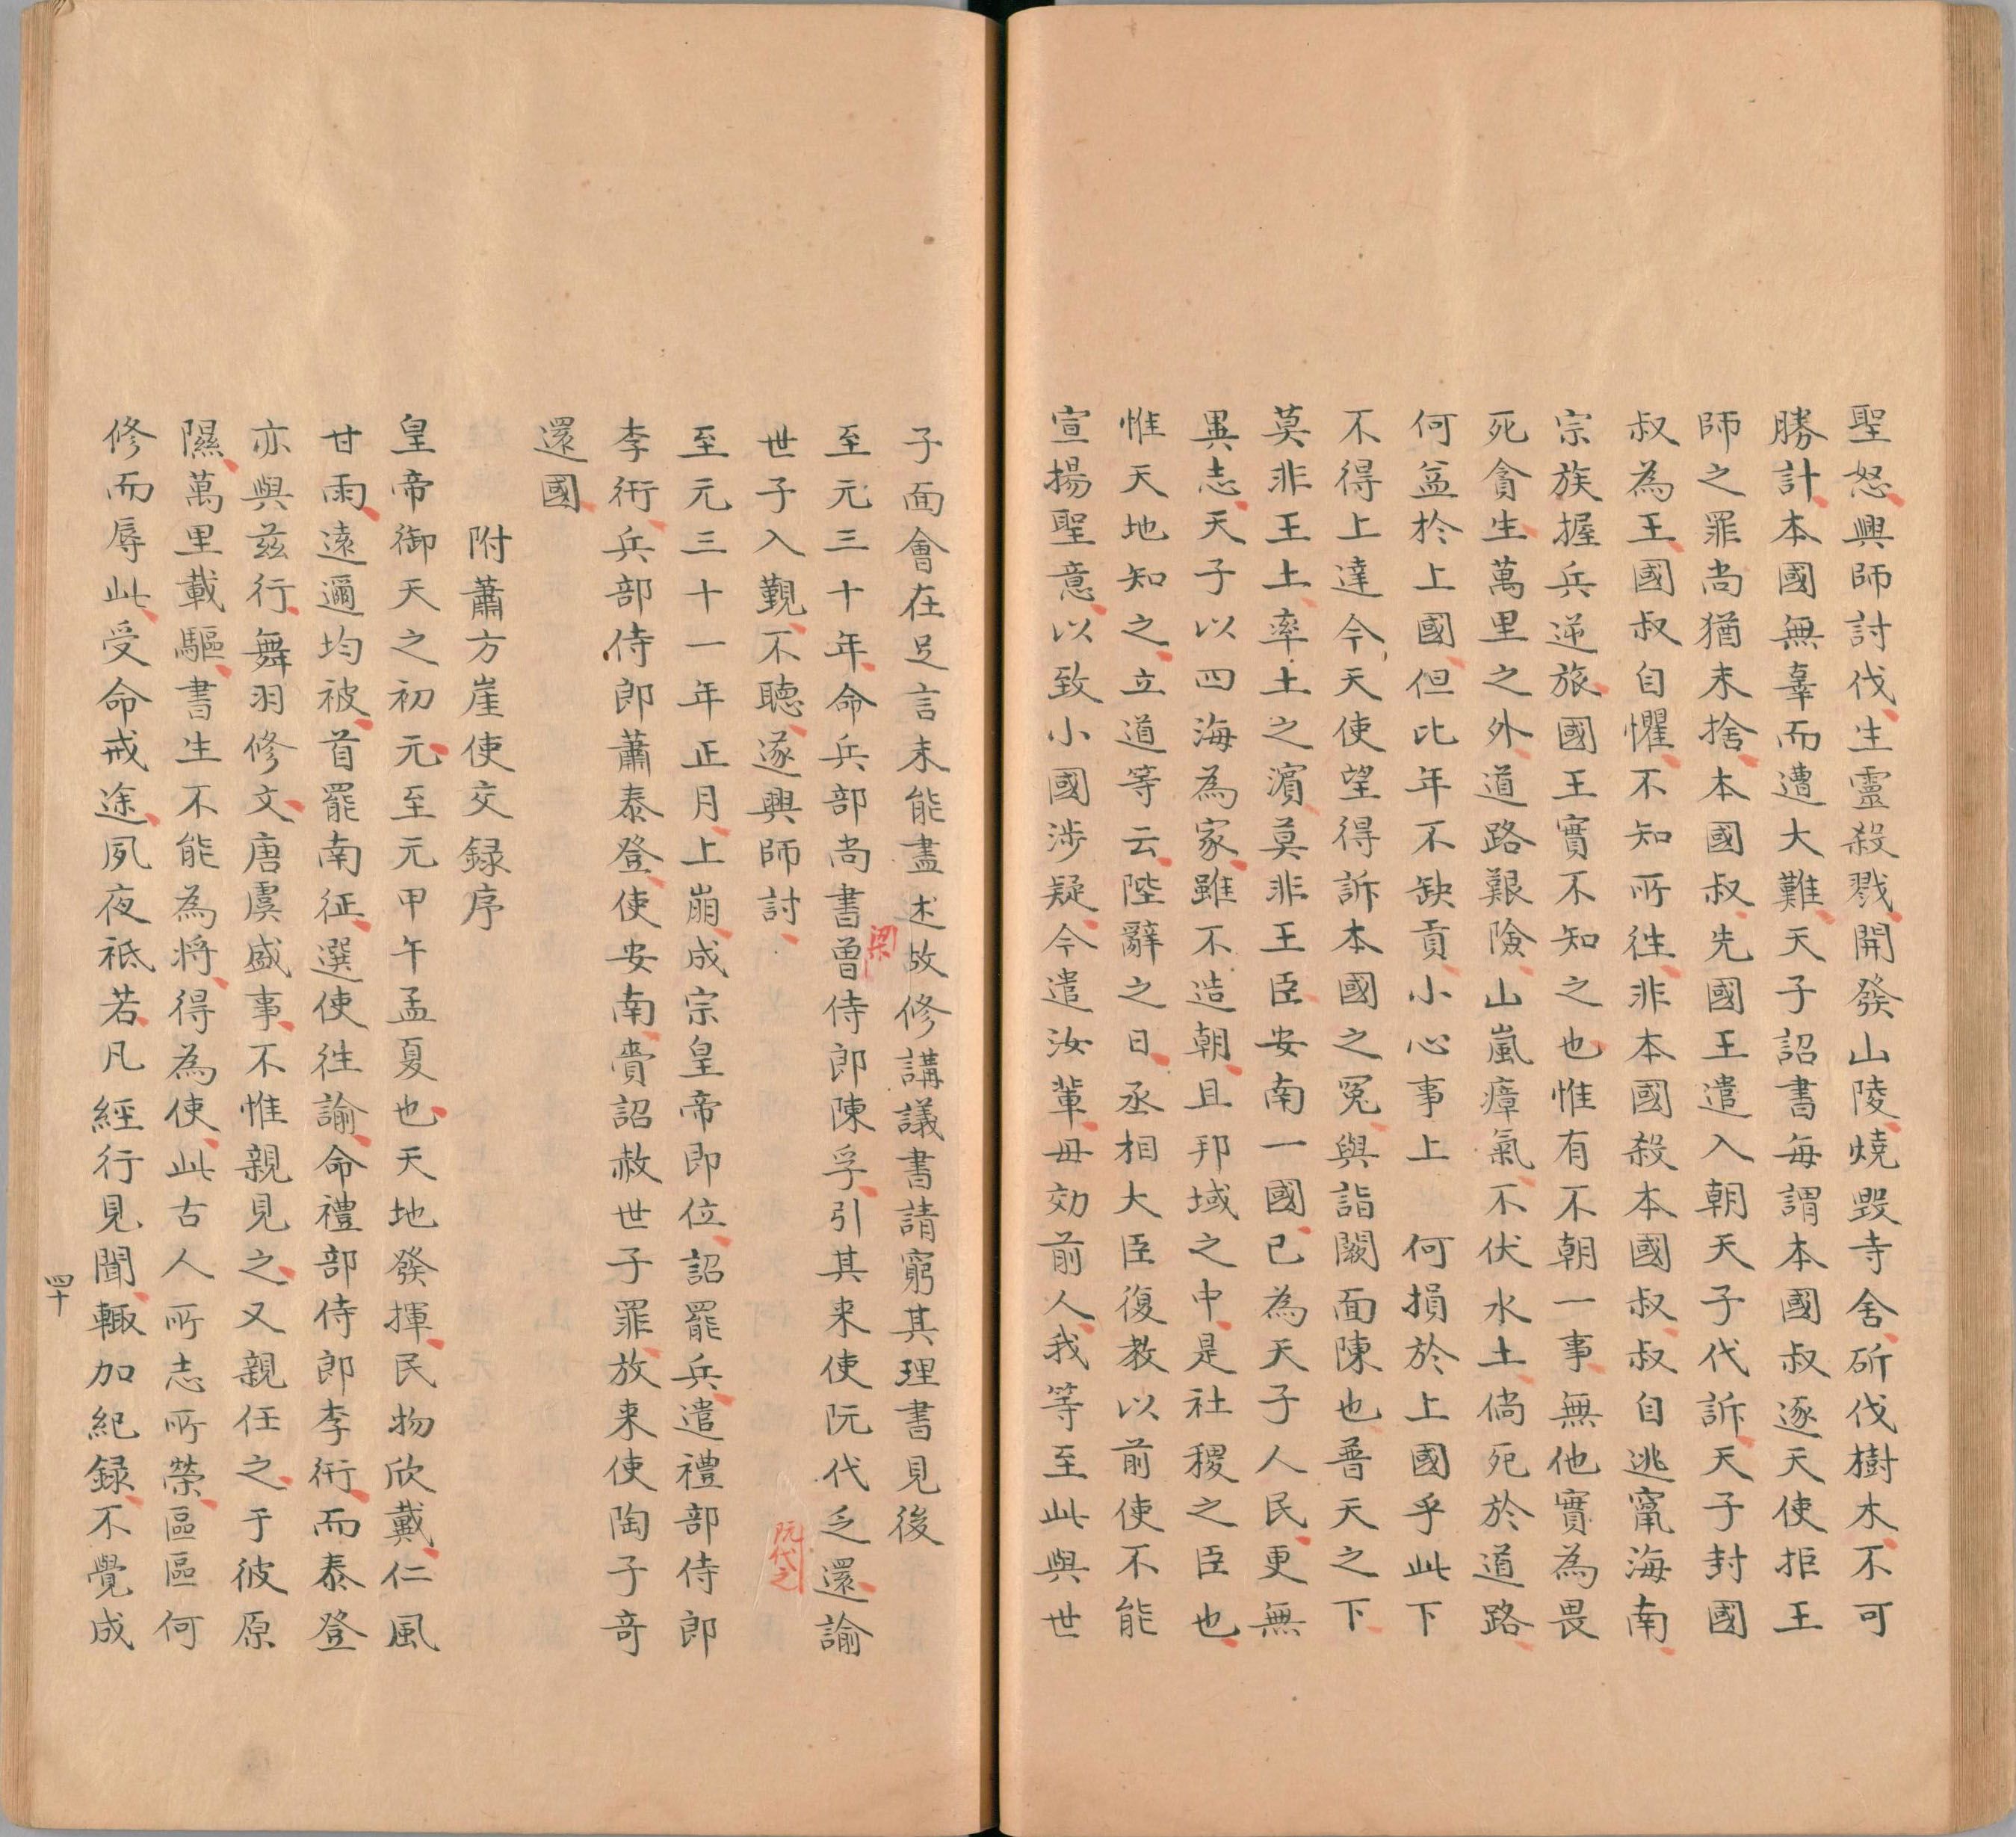 聖怒興師討伐生靈殺戮開發山陵燒毀寺舍斫伐樹木不可
勝計本國無辜而遭大難天子詔書每謂本國叔逐天使拒王
師之罪尚猶未捨本國叔先國王遣入朝天子代訴天子封國
叔為王國叔自懼不知所徃非本國殺本國叔叔自逃竄海南
宗族握兵逆旅國王實不知之也惟有不朝一事無他實為畏
死貪生萬里之外道路艱險山嵐瘴氣不伏水土倘死於道路
何益於上國但比年不缺貢小心事上何損於上國乎此下
不得上達今天使望得訴本國之冤與詣闕面陳也普天之下
莫非王土率土之濵莫非王臣安南一國已為天子人民更無
異志天子以四海為家雖不造朝且邦域之中是社稷之臣也
惟天地知之立道等云陛辭之日丞相大臣復教以前使不能
宣揚聖意以致小國涉疑今遣汝輩毋効前人我等至此與世
子面會在足言未能盡述故修講議書請窮其理書見後
至元三十年命兵部尚書曾侍郎陳孚引其来使阮代乏還諭
梁
世子入覲不聽遂興師討
阮代之
至元三十一年正月上崩成宗皇帝即位詔罷兵遣禮部侍郎
李衎兵部侍郎蕭泰登使安南賫詔赦世子罪放来使陶子竒
還國
附蕭方崖使交録序
皇帝御天之初元至元甲午孟夏也天地發揮民物欣戴仁風
甘雨遠邇均被首罷南征選使徃諭命禮部侍郎李衎而泰登
亦與茲行舞羽修文唐虞盛事不惟親見之又親任之于彼原
隰萬里載驅書生不能為將得為使此古人所志所榮區區何
修而辱此受命戒途夙夜祗若凡經行見聞輙加紀録不覺成
四十